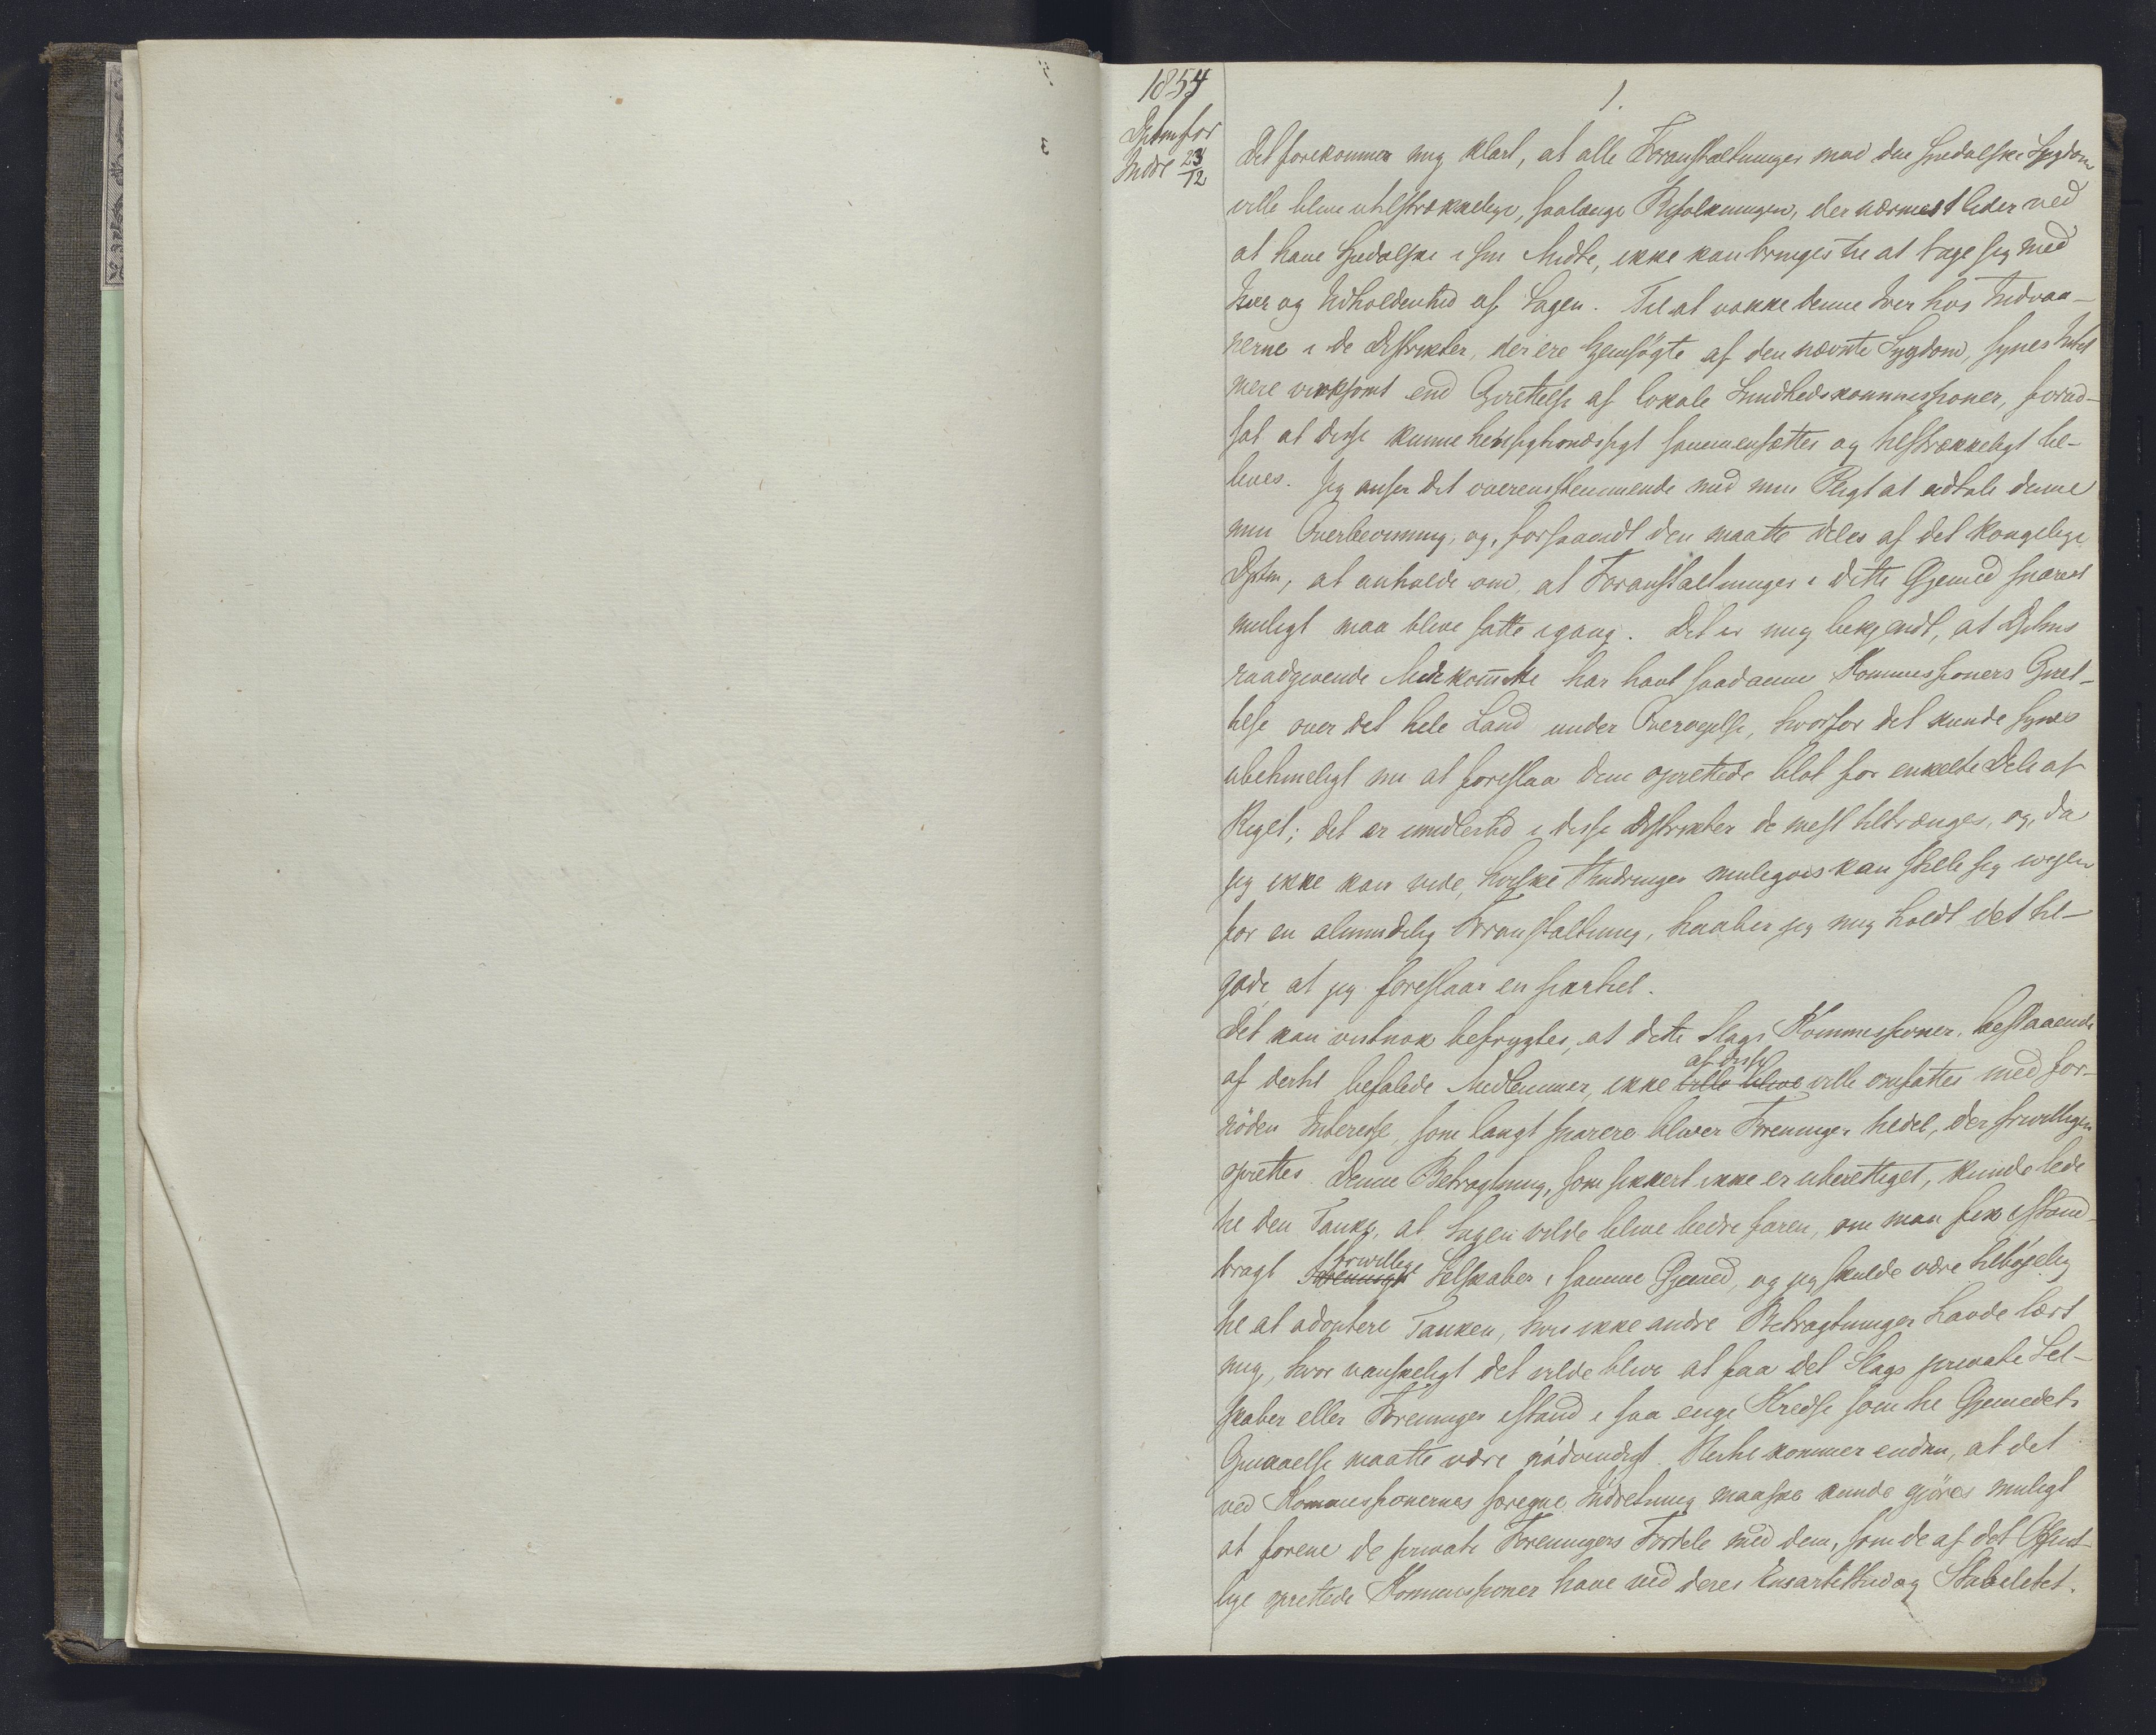 1854
1.
Dptm for
Indre 23/12
Det forekommer mig klart, at alle Foranstaltninger mod den spedalske Sygdom
ville blive utilstrækkelige, saalænge Befolkningen, der nærmest lider ved
at have Spedalske i sin Midte, ikke kan bringes til at tage sig med
Iver og Udholdenhed af Sagen. Til at vække denne Iver hos Indvaa-
nerne i de Distrikter, der ere hjemsögte af den nævnte Sygdom, synes Intet
mere virksomt end Oprettelse af lokale Sundhedskommissioner, forud-
sat at disse kunne hensigtsmæssigt sammensættes og tilstrækkeligt be-
lives. Jeg anser det overensstemmende med min Pligt at udtale denne
min Overbevisning, og, forsaavidt den maatte deles af det kongelige
Dptm, at anholde om, at Foranstaltninger i dette Øjemed snarest
muligt maa blive satte igang. Det er mig bekjendt, at Dptms
raadgivende Medkomitte har havt saadanne Kommissioners Opret-
telse over det hele Land under Overvejelse, hvorfor det kunde synes
ubetimeligt nu at foreslaa dem oprettede blot for enkelte Dele af
Riget; det er imidlertid i disse Distrikter de mest tiltrænges, og, da
jeg ikke kan vide, hvilke Hindringer muligvis kan stille sig ivejen
for en almindelig Foranstaltning, haaber jeg mig holdt det til-
gode, at jeg foreslaar en partiel.
Det kan vistnok befrygtes, at dette Slags Kommissioner, bestaaende
af dertil befalede Medlemmer, ikke ville blive af disse ville omfattes med for-
nöden Interesse, som langt snarere bliver Foreninger tildel, der frivilligen
oprettes. Denne Betragtning, som sikkert ikke er uberettiget, kunde lede
til den Tanke, at Sagen vilde blive bedre faren, om man fik istand-
bragt Foreninger frivillige Selskaber i samme Øjemed, og jeg skulde være tilböjelig
til at adoptere Tanken, hvis ikke andre Betragtninger havde lært
mig, hvor vanskeligt det vilde blive at faa det Slags private Sel-
skaber eller Foreninger istand i saa enge Kredse som til Øjemedets
Opnaaelse maatte være nödvendigt. Hertil kommer endnu, at det
ved Kommissionernes særegne Indretning maaske kunde gjöres muligt
at forene de private Foreningers Fordele med dem, som de af det Offent-
lige oprettede Kommissioner have ved deres Ensartethed og Stabilitet.